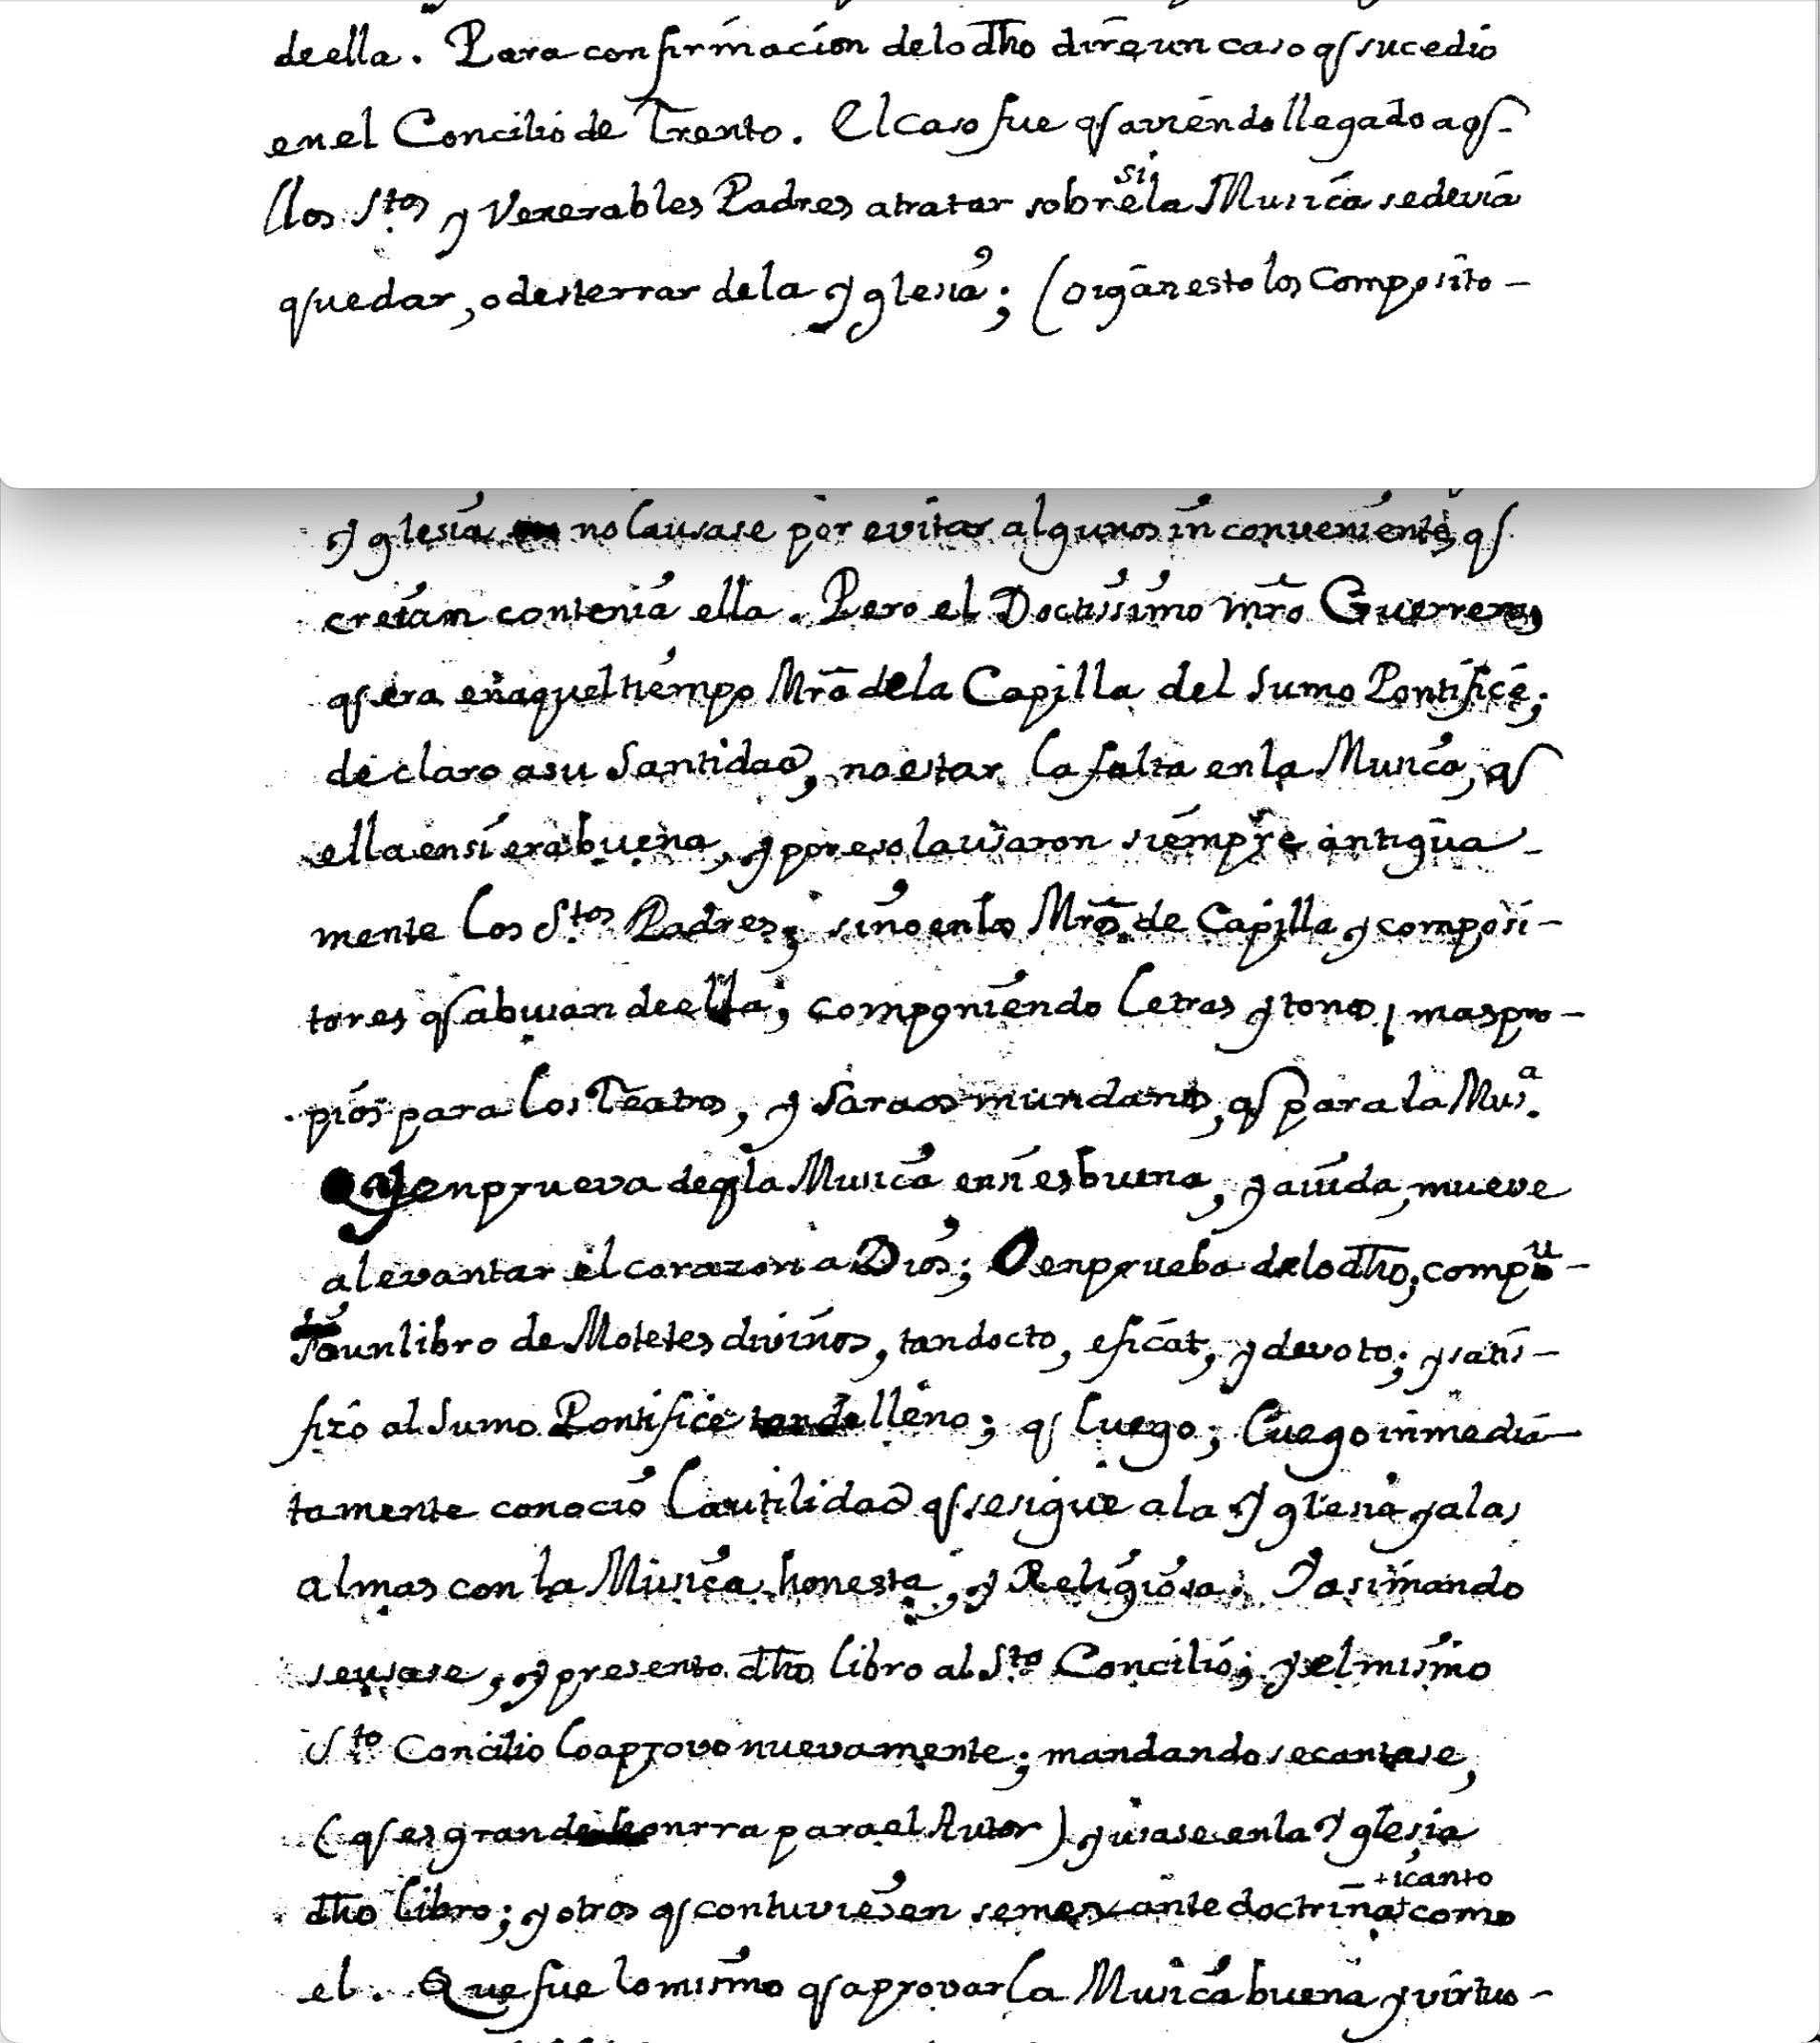 de ella. Para confirmacion de lo dho dire un caso q sucedio
en el Concilio de Trento. El caso fue q aviendo llegado aq-
llos Stos y Venerables Padres a tratar sobre si la Musica se devia
quedar, o desterrar de la Yglesia; (oigan esto los Composito-
Yglesia no la usase por evitar algunos inconvenientes q
creían contenia ella. Pero el Doctissimo Mro Guerrero,
q era en aquel tiempo Mro de la Capilla del Sumo Pontifice;
declaro a su Santidad, no estar la falta en la Musica, q
ella en sí era buena, y por eso la usaron siempre antigua-
mente los Stos Padres; sino en los Mros de Capilla y composi-
tores q abusan de ella, componiendo letras y tonos, mas pro-
pios para los Teatros, y Saraos mundanos, q para la Musa.
Y en prueva de q la Musica en si es buena, y aiuda, mueve
a levantar el corazon a Dios; O en prueba de lo dho, compu-
so un libro de Motetes divinos, tan docto, eficat, y devoto; y satis-
fizo al Sumo Pontifice tan de lleno; q luego; luego inmedia-
tamente conocio la utilidad q se sigue a la Yglesia y a las
almas con la Musica honesta, y Religiosa. Y asi mando
se usase, y presento dho libro al Sto Concilio; y el mismo
Sto Concilio lo aprovo nuevamente; mandando se cantase,
(q es grande honrra para el Autor) y usase en la Yglesia
dho libro; y otros q contuviesen semexante doctrina + i canto como
el. Que fue lo mismo q aprovar la Musica buena y virtuo-